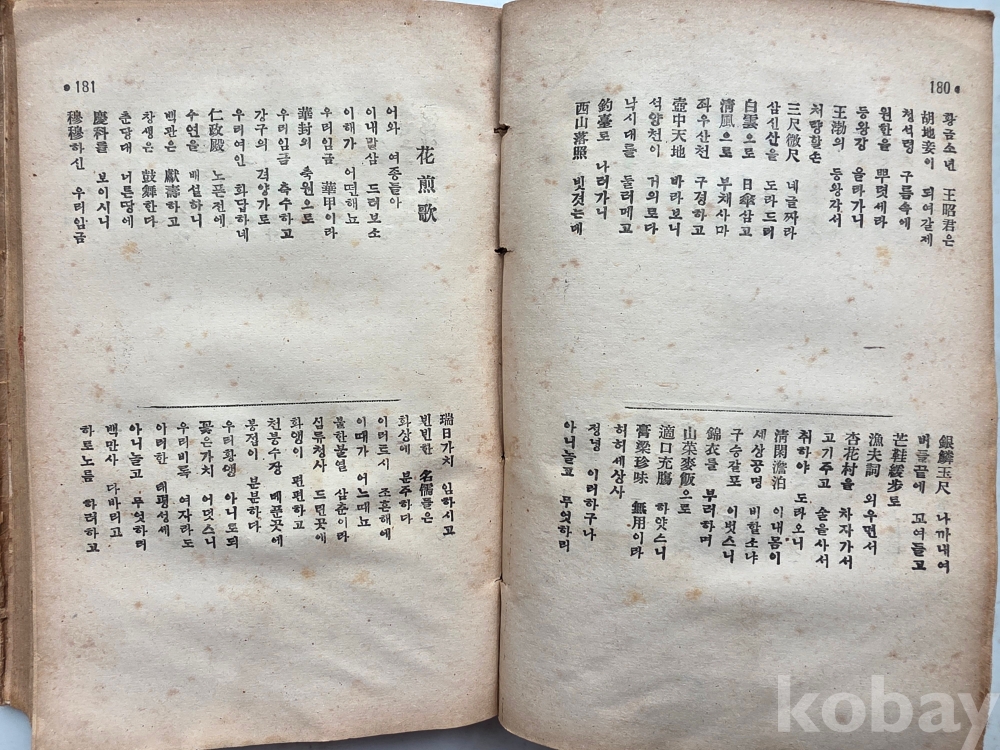 180
황금소년 王昭君은
胡地妾이 되여갈제
철석령 구름속에
원한을 뿌렷세라
등왕강 올타가니
王渤의 등왕각서
처량할손
三尺微尺 네글짜라
삼신산을 도라드러
白雲으로 日傘삼고
清風으로 부채사마
좌우산천 구경하고
壺中天地 바라보니
석양천이 거의로다
낙시대를 둘러메고
釣臺로 나려가니
西山落照 빗젓는대
銀鱗玉尺 나까내여
버들끝에 꼬여들고
芒鞋緩步로
漁夫詞 외우면서
杏花村을 차자가서
고기주고 술을사서
취하야 도라오니
清閑澹泊 이내몸이
세상공명 비할소냐
구승갈포 이벗스니
錦衣를 부러하며
山菜麥飯으로
適口充膓 하얏스니
膏粱珍味 無用이라
허허세상사
정녕 이러하구나
아니놀고 무엇하리
181
花煎歌
어와 여종들아
이내말삼 드러보소
이해가 어떤해뇨
우리임금 華甲이라
華封의 축원으로
우리임금 축수하고
강구의 격양가로
우리여인 화답하네
仁政殿 노픈전에
수연을 배설하니
백관은 獻壽하고
창생은 鼓舞한다
춘당대 너튼땅에
慶科를 보이시니
穆穆하신 우리임금
瑞日가치 임하시고
빈빈한 名儒들은
화상에 분주하다
이러므시 조흔해에
이때가 어느때뇨
불한불열 삼춘이라
심류청사 드린곳에
화앵이 편편하고
천봉수장 떼픈곳에
봉접이 분분하다
우리황앵 아니로되
꽃은가치 어딧스니
우리비록 여자라도
이러한 태평성세
아니놀고 무엇하리
백만사 다바리고
하로노름 하려하고
kobay